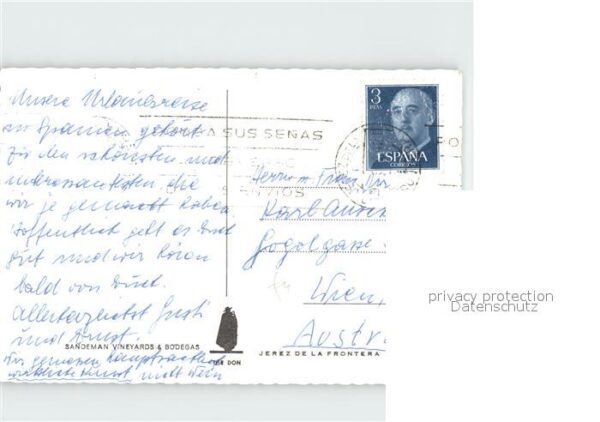 Unsere Urlaubsreise
in Spanien gehört
zu den schönsten und
interessantesten die
wir je gemacht haben
Hoffentlich geht es
gut und wir hören
bald von
Allerherzlichst Gusti
und
Wir geniessen hauptsächlich
nicht Wein
SANDEMAN VINEYARDS & BODEGAS
THE DON
JEREZ DE LA FRONTERA
SUS SEÑAS
3
PTAS
ESPAÑA
CORREOS
Herrn u Frau
Karl
Gogolgasse
Wien,
Austr
privacy protection
Datenschutz